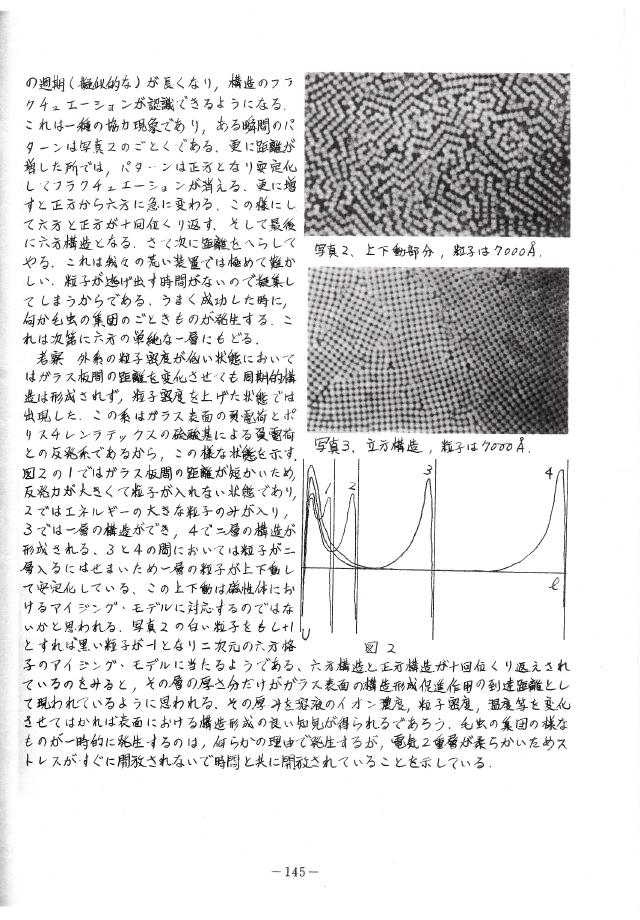 の週期(擬似的な)が長くなり，構造のフラ
クチュエーションが認識できるようになる．
これは一種の協力現象であり，ある瞬間のパ
ターンは写真2のごとくである．更に距離が
増した所では，パターンは正方となり安定化
してフラクチュエーションが消える．更に増
すと正方から六方に急に変わる．この様にし
て六方と正方が十回位くり返す．そして最後
に六方構造となる．さて次に距離をへらして
やる．これは我々の荒い装置では極めて難か
しい．粒子が逃げ出す時間がないので凝集し
てしまうからである．うまく成功した時に，
何か毛虫の集団のごときものが発生する．こ
れは次第に六方の単純な一層にもどる．
考察　外系の粒子密度が低い状態において
はガラス板間の距離を変化させても周期的構
造は形成されず，粒子密度を上げた状態では
出現した．この系はガラス表面の負電荷とポ
リスチレンラテックスの硫酸基による負電荷
との反発系であるから，この様な状態を示す．
図2の1ではガラス板間の距離が短かいため，
反発力が大きくて粒子が入れない状態であり，
2ではエネルギーの大きな粒子のみが入り，
3では一層の構造ができ，4で二層の構造が
形成される．3と4の間においては粒子が二
層入るにはせまいため一層の粒子が上下動し
て安定化している．この上下動は磁性体にお
けるアイジング・モデルに対応するのではな
いかと思われる．写真2の白い粒子をもし+1
とすれば黒い粒子が-1となり二次元の六方格
子のアイジング・モデルに当たるようである．六方構造と正方構造が十回位くり返えされ
ているのをみると，その層の厚さ分だけがガラス表面の構造形成促進作用の到達距離とし
て現われているように思われる．その厚みを溶液のイオン濃度，粒子密度，温度等を変化
させてはかれば表面における構造形成の良い知見が得られるであろう．毛虫の集団の様な
ものが一時的に発生するのは，何らかの理由で発生するが，電気2重層が柔らかいためス
トレスがすぐに開放されないで時間と共に開放されていることを示している．
写真2、上下動部分，粒子は7000Å．
写真3、立方構造，粒子は7000Å．
1 2 3 4
l
U
図2
-145-